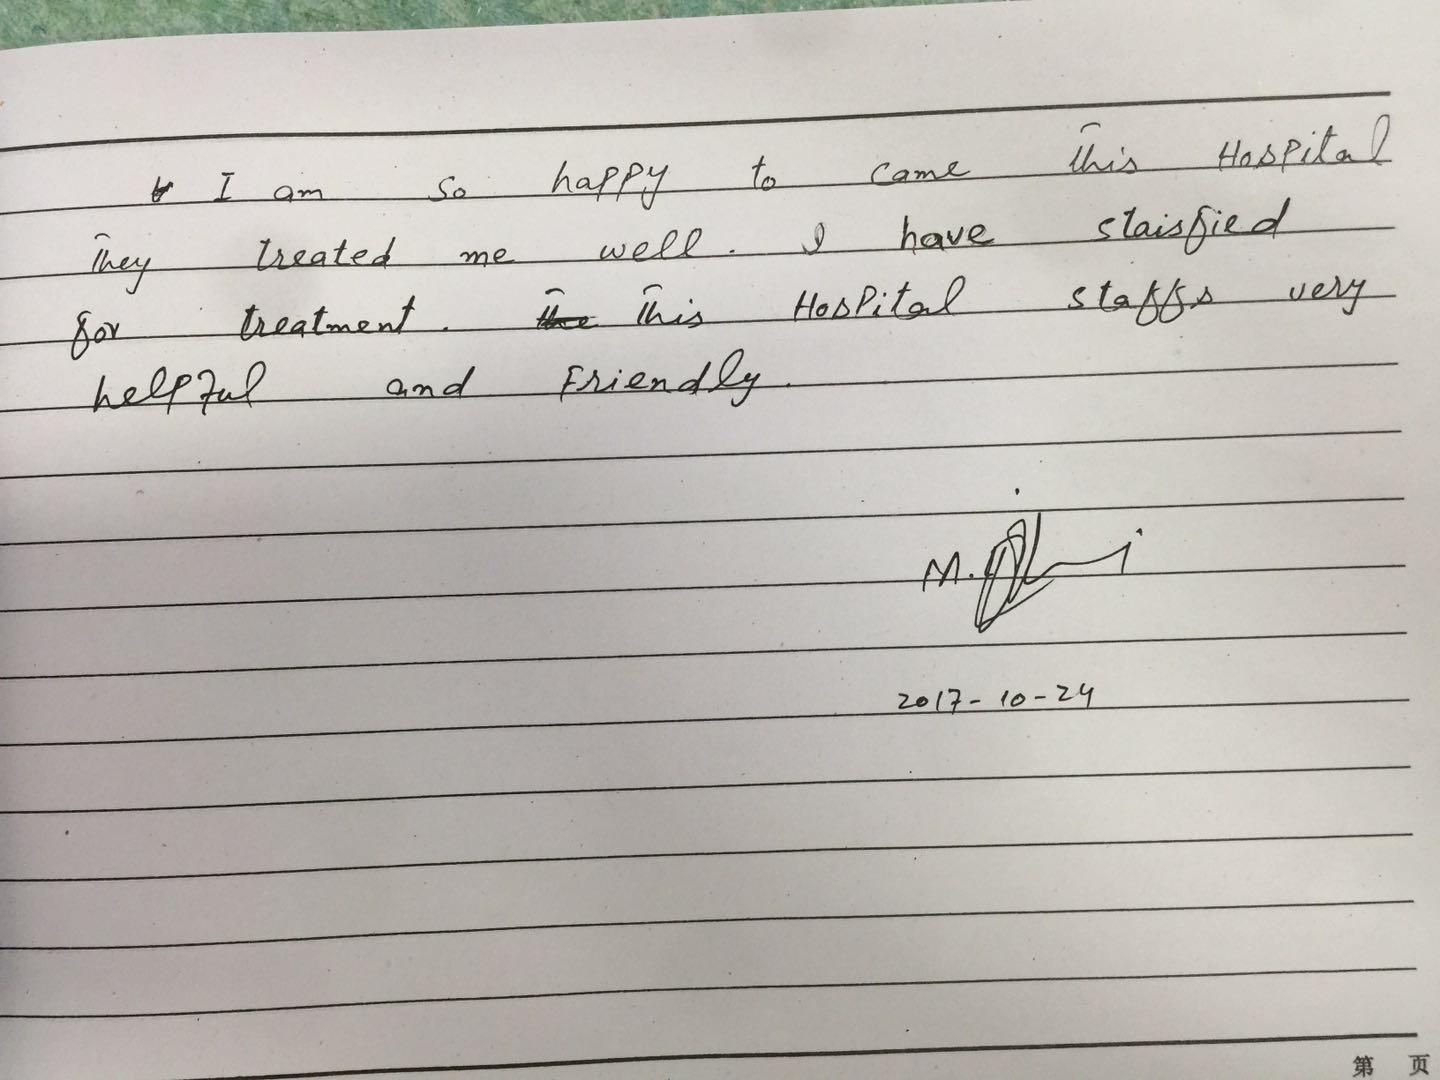 I am so happy to came this Hospital
They treated me well. I have staisfied
for treatment. This Hospital staffs very
helpful and Friendly.
M.
2017-10-24
第 页